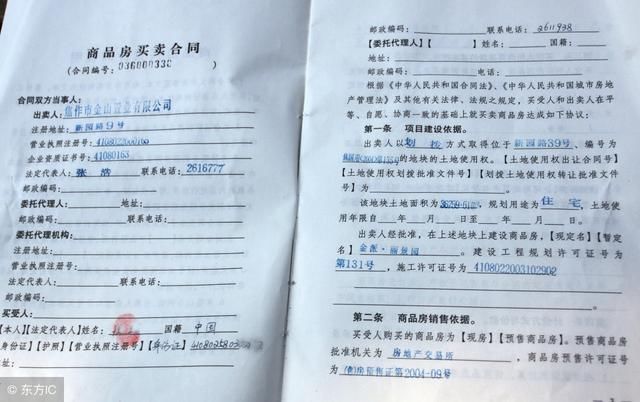 商品房买卖合同
（合同编号：036000330）
合同双方当事人：
出卖人：焦作市金山置业有限公司
注册地址：新园路9号
营业执照注册号：4108022000165
企业资质证书号：41080163
法定代表人：张浩 联系电话：2616777
邮政编码：
委托代理人： 地址：
邮政编码： 联系电话：
委托代理机构：
注册地址：
营业执照注册号：
法定代表人： 联系电话：
邮政编码：
买受人：
【本人】【法定代表人】姓名： 国籍 中国
【身份证】【护照】【营业执照注册号】【身份证】410802580
地址：
© 东方IC
邮政编码： 联系电话：2611938
【委托代理人】【 】姓名： 国籍：
地址：
邮政编码： 电话：
根据《中华人民共和国合同法》、《中华人民共和国城市房地
产管理法》及其他有关法律、法规之规定，买受人和出卖人在平
等、自愿、协商一致的基础上就买卖商品房达成如下协议：
第一条 项目建设依据。
出卖人以划拨方式取得位于新园路39号、编号为
的地块的土地使用权。【土地使用权出让合同号】
【土地使用权划拨批准文件号】【划拨土地使用权转让批准文件
号】为
该地块土地面积为，规划用途为住宅，土地使
用年限自 年 月 日至 年 月 日。
出卖人经批准，在上述地块上建设商品房，【现定名】【暂定
名】金派·丽景园。建设工程规划许可证号为
第131号，施工许可证号为4108022003102902
第二条 商品房销售依据。
买受人购买的商品房为【现房】【预售商品房】。预售商品房
批准机关为房地产交易所，商品房预售许可证号
为房预售证第2004-09号